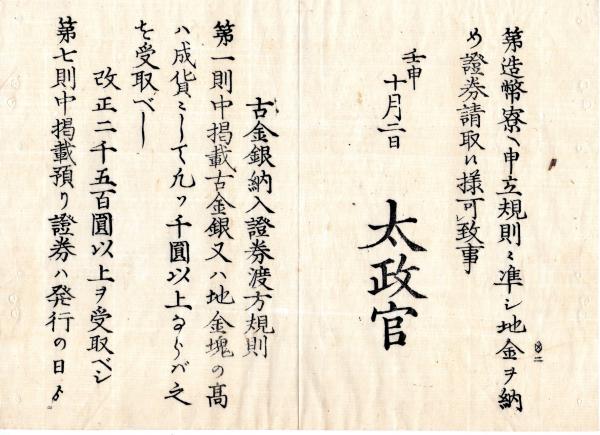 第造幣寮ヘ申立規則ニ準シ地金ヲ納
め證券請取候様可致事
壬申
十月二日
太政官
古金銀納入證券渡方規則
第一則中掲載古金銀又ハ地金塊の高
ハ成貨ニして凡ッ千圓以上ならバ之
を受取べし
改正二千五百圓以上ヲ受取ベシ
第七則中掲載預り證券ハ発行の日ゟ